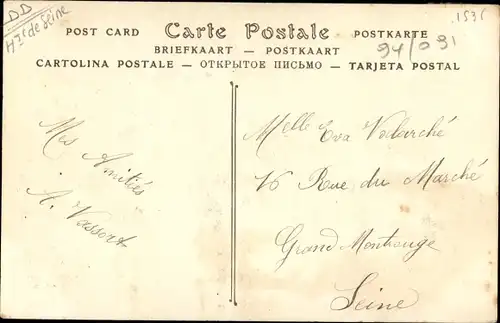 DD
Hts de Seine
1536
94/091
POST CARD Carte Postale POSTKARTE
BRIEFKAART — POSTKAART
CARTOLINA POSTALE — ОТКРЫТОЕ ПИСЬМО — TARJETA POSTAL
Mes Amitiés
A. Vassort
Melle Eva Voderché
16 Rue du Marché
Grand Montrouge
Seine